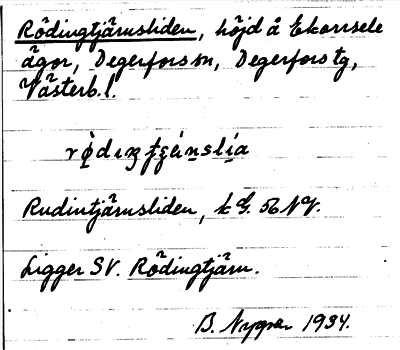 Rödingtjärnsliden, höjd å Ekorrsele
ägor, Degerfors sn, Degerfors tg,
Västerb. l.
Rudintjärnsliden, k G. 56 NV.
Ligger SV. Rödingtjärn.
B. 1934.